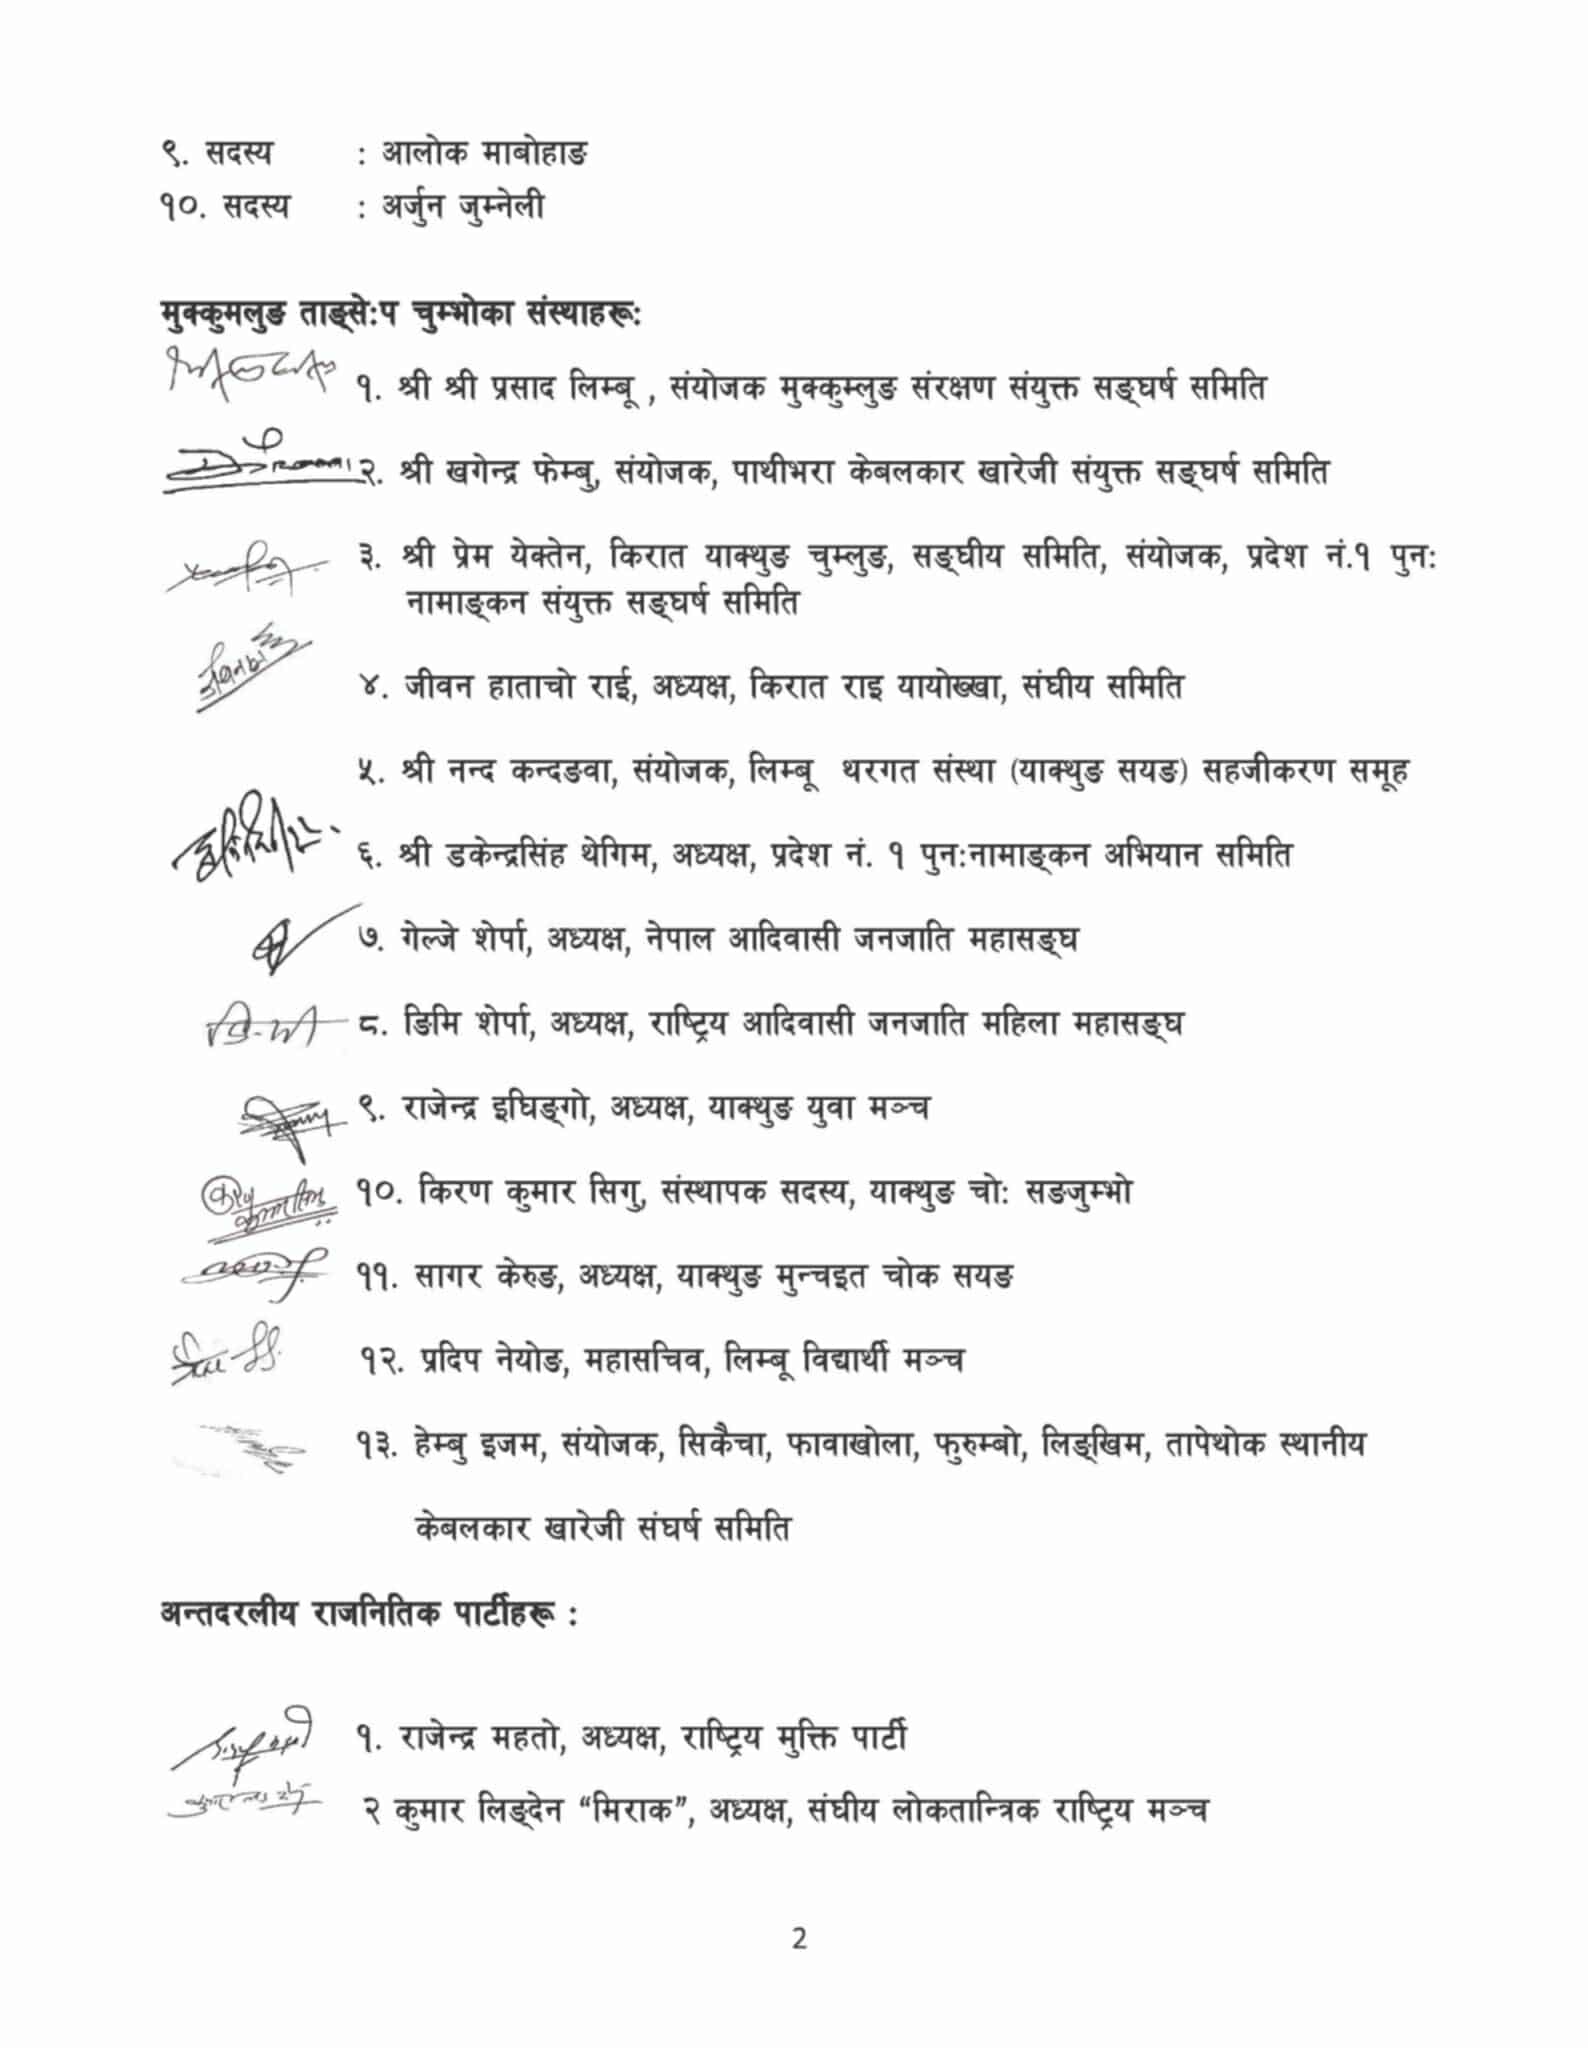 ९. सदस्य : आलोक माबोहाङ
१०. सदस्य : अर्जुन जुम्नेली
मुक्कुमलुङ ताङ्सेःप चुम्भोका संस्थाहरूः
१. श्री श्री प्रसाद लिम्बू , संयोजक मुक्कुम्लुङ संरक्षण संयुक्त सङ्घर्ष समिति
२. श्री खगेन्द्र फेम्बु, संयोजक, पाथीभरा केबलकार खारेजी संयुक्त सङ्घर्ष समिति
३. श्री प्रेम येक्तेन, किरात याक्थुङ चुम्लुङ, सङ्घीय समिति, संयोजक, प्रदेश नं.१ पुनः
नामाङ्कन संयुक्त सङ्घर्ष समिति
४. जीवन हाताचो राई, अध्यक्ष, किरात राइ यायोख्खा, संघीय समिति
५. श्री नन्द कन्दङवा, संयोजक, लिम्बू थरगत संस्था (याक्थुङ सयङ) सहजीकरण समूह
६. श्री डकेन्द्रसिंह थेगिम, अध्यक्ष, प्रदेश नं. १ पुनःनामाङ्कन अभियान समिति
७. गेल्जे शेर्पा, अध्यक्ष, नेपाल आदिवासी जनजाति महासङ्घ
८. ङिमि शेर्पा, अध्यक्ष, राष्ट्रिय आदिवासी जनजाति महिला महासङ्घ
९. राजेन्द्र इघिङ्गो, अध्यक्ष, याक्थुङ युवा मञ्च
१०. किरण कुमार सिगु, संस्थापक सदस्य, याक्थुङ चोः सङजुम्भो
११. सागर केरुङ, अध्यक्ष, याक्थुङ मुन्चइत चोक सयङ
१२. प्रदिप नेयोङ, महासचिव, लिम्बू विद्यार्थी मञ्च
१३. हेम्बु इजम, संयोजक, सिकैचा, फावाखोला, फुरुम्बो, लिङ्खिम, तापेथोक स्थानीय
केबलकार खारेजी संघर्ष समिति
अन्तदरलीय राजनितिक पार्टीहरू :
१. राजेन्द्र महतो, अध्यक्ष, राष्ट्रिय मुक्ति पार्टी
२ कुमार लिङ्देन “मिराक”, अध्यक्ष, संघीय लोकतान्त्रिक राष्ट्रिय मञ्च
2